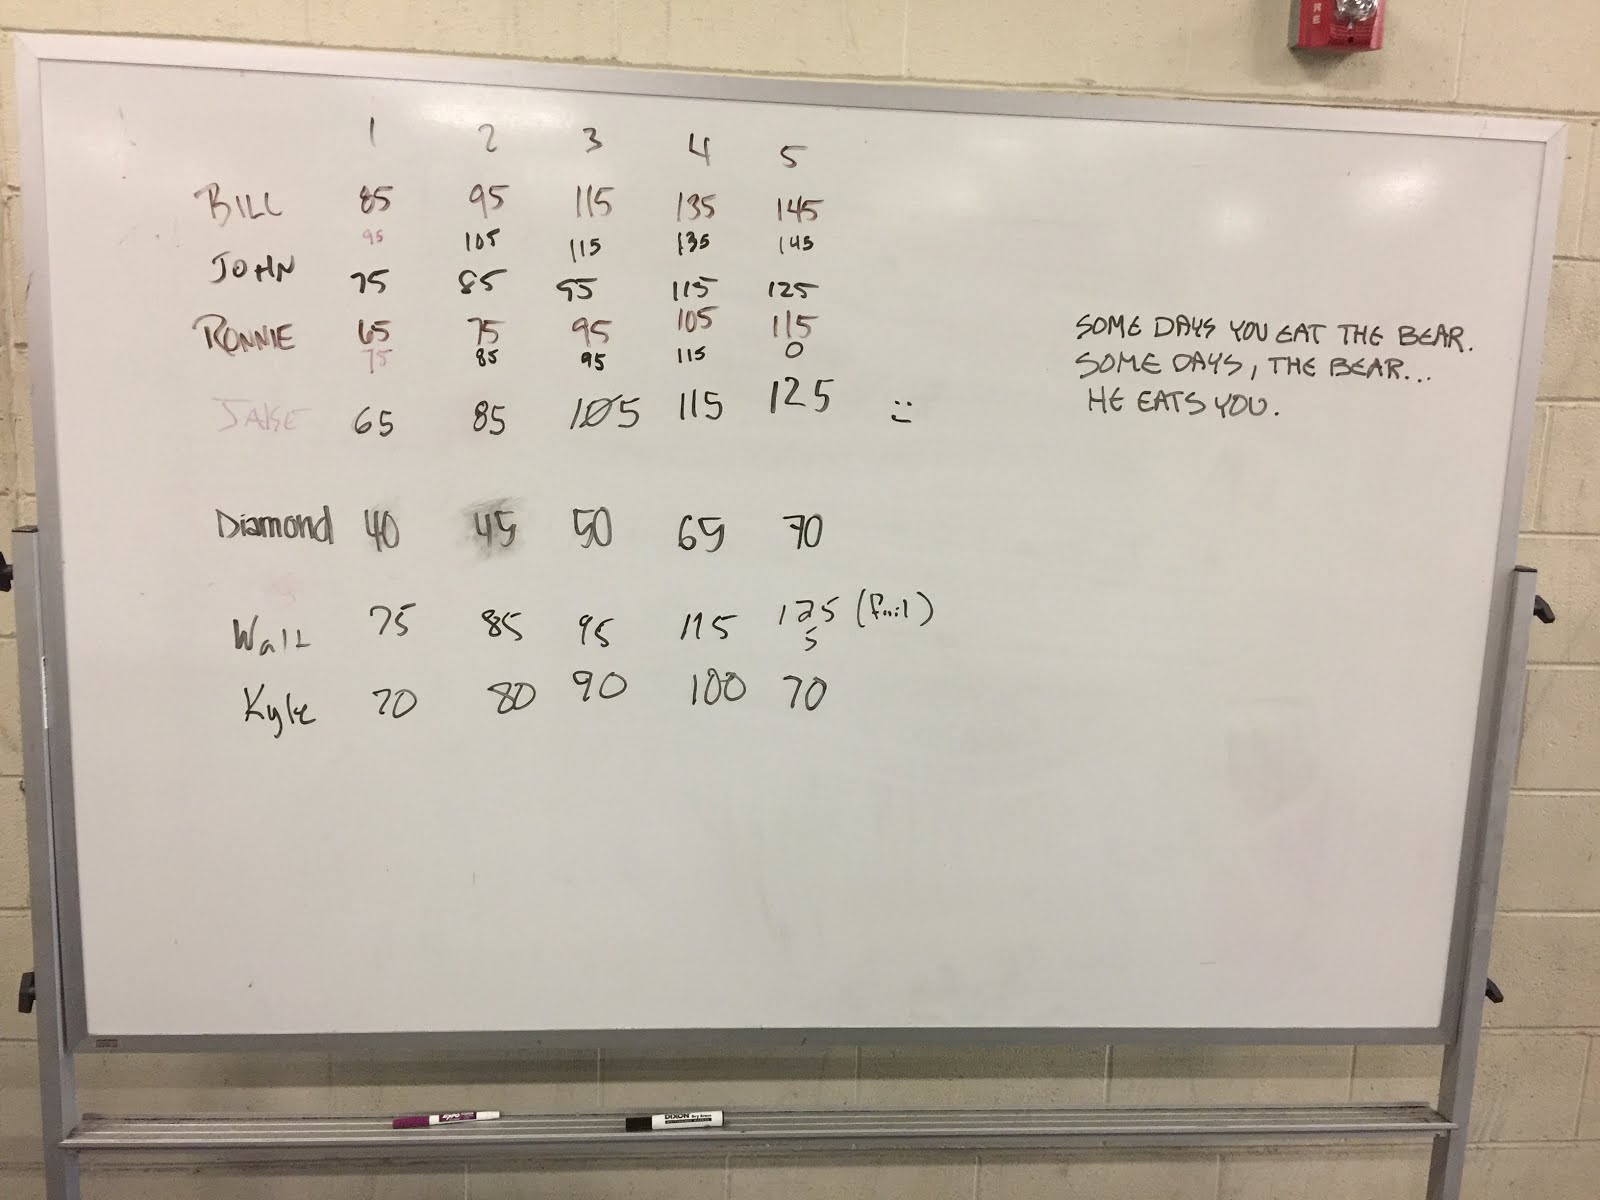 1 2 3 4 5
BILL 85 95 115 135 145
95 105 115 135 145
JOHN 75 85 95 115 125
RONNIE 65 75 95 105 115
75 85 95 115 0
JAKE 65 85 105 115 125 :)
SOME DAYS YOU EAT THE BEAR.
SOME DAYS, THE BEAR...
HE EATS YOU.
Diamond 40 45 50 65 70
Walt 75 85 95 115 125 (fail)
5
Kyle 70 80 90 100 70
DIXON